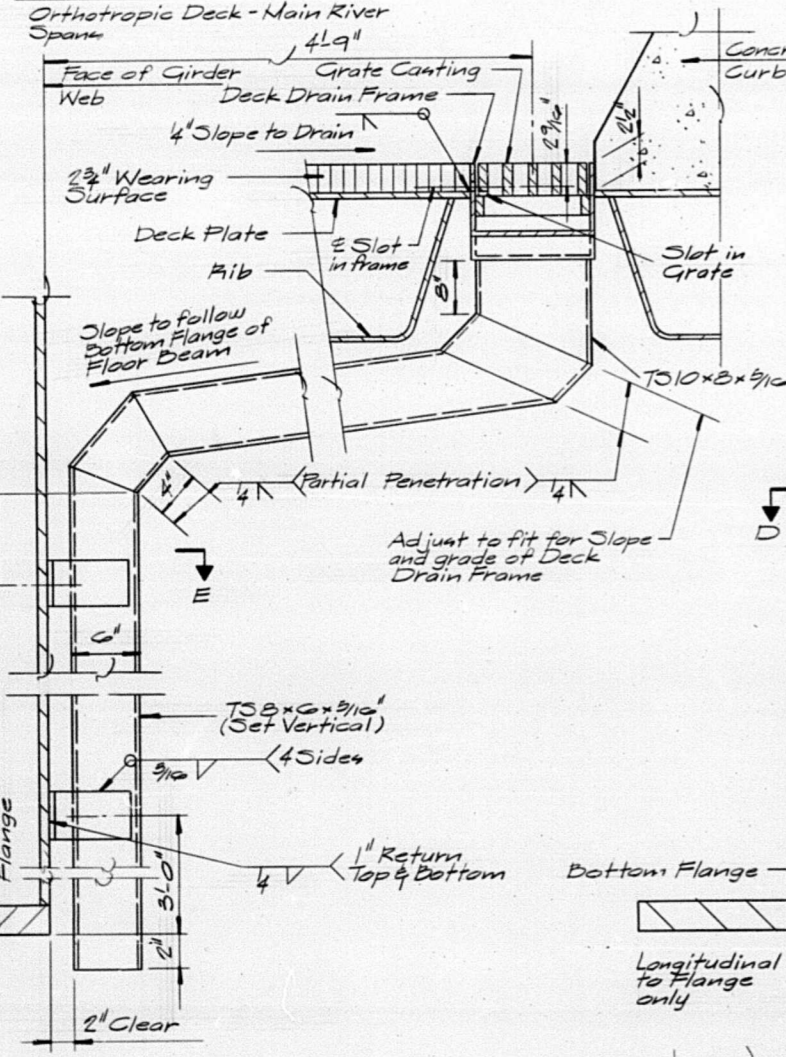 Orthotropic Deck - Main River
Spans
4'-9"
Face of Girder
Web
Grate Casting
Deck Drain Frame
Concr
Curb
¼" Slope to Drain
2 9/16"
2½"
2¾" Wearing
Surface
Deck Plate
℄ Slot
in frame
Slot in
Grate
Rib
8"
Slope to follow
Bottom Flange of
Floor Beam
TS10×8×5/16
4"
¼
Partial Penetration
¼
Adjust to fit for Slope
and grade of Deck
Drain Frame
D
E
6"
TS8×6×5/16"
(Set Vertical)
3/16
4 Sides
Flange
1" Return
Top & Bottom
¼
3'-0"
2"
Bottom Flange
Longitudinal
to Flange
only
2" Clear